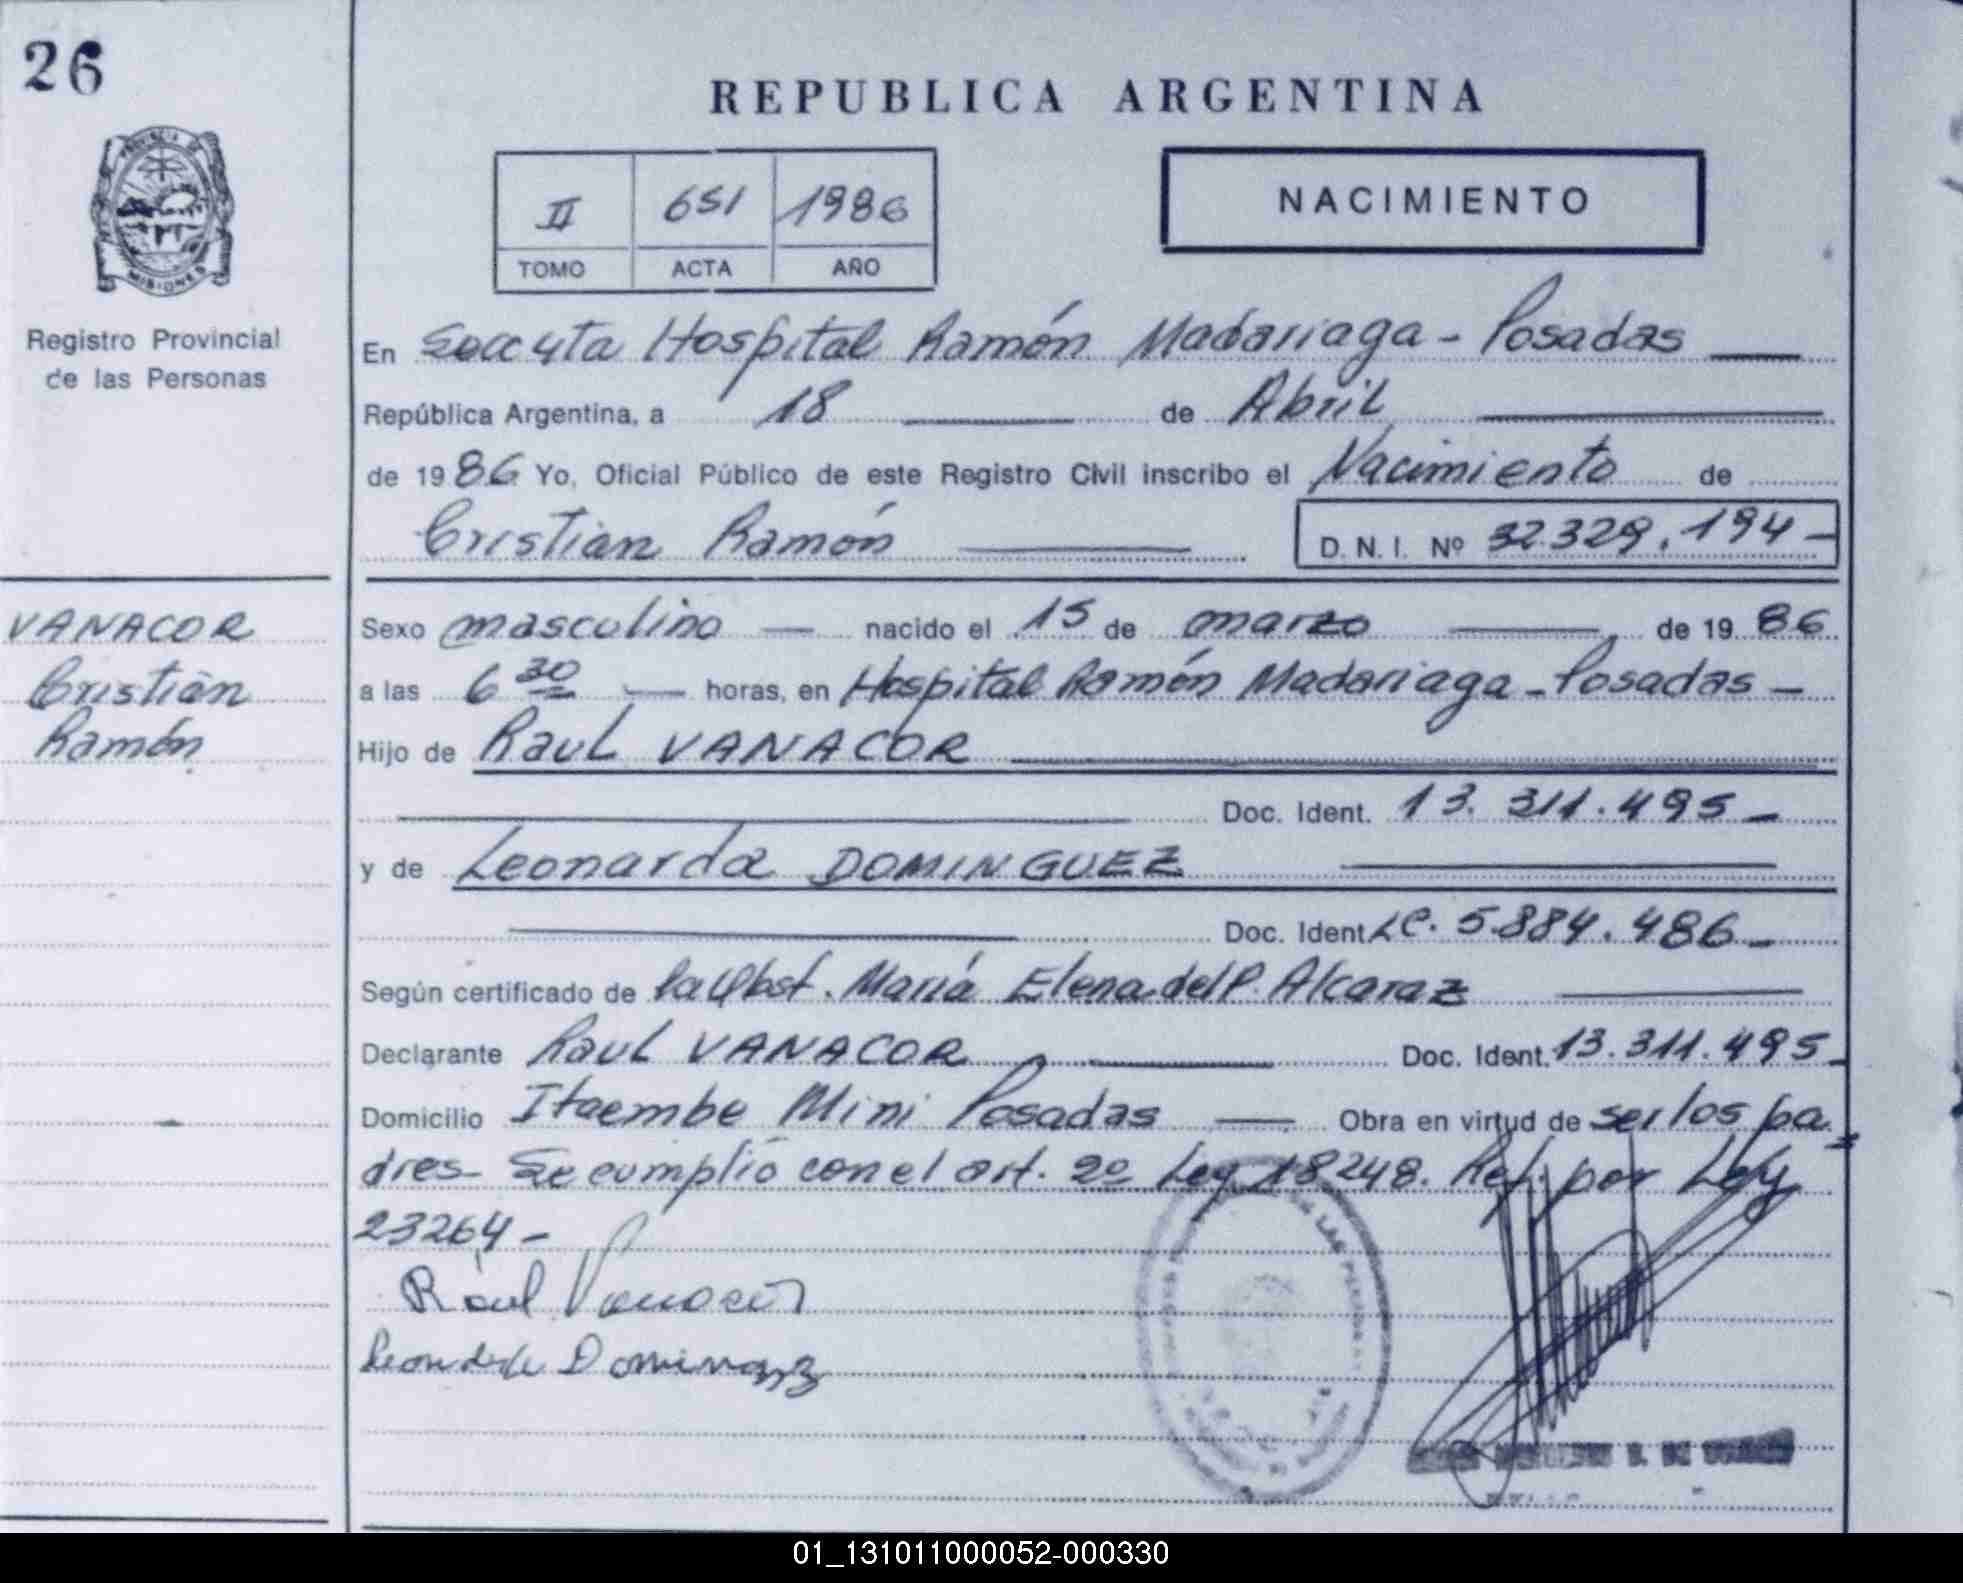 26
REPUBLICA ARGENTINA
PROVINCIA DE
MISIONES
Registro Provincial
de las Personas
II 651 1986
TOMO ACTA AÑO
NACIMIENTO
En Hospital Ramón Madariaga - Posadas
República Argentina, a 18 de Abril
de 1986 Yo, Oficial Público de este Registro Civil inscribo el Nacimiento de
Cristian Ramón D. N. I. Nº 32.329.194-
VANACOR
Cristian
Ramón
Sexo masculino nacido el 15 de marzo de 1986
a las 6 30 horas, en Hospital Ramón Madariaga - Posadas -
Hijo de Raul VANACOR
Doc. Ident. 13.311.495-
y de Leonarda DOMINGUEZ
Doc. Ident LC. 5.884.486-
Según certificado de la Obst. María Elena del P. Alcaraz
Declarante Raul VANACOR Doc. Ident. 13.311.495-
Domicilio Itaembe Mini Posadas Obra en virtud de ser los pa=
dres- Se cumplió con el art. 2º Ley 18248. Ref. por Ley
23264-
Raul Vanacor
Dominguez
LAS PERSONAS
01_131011000052-000330